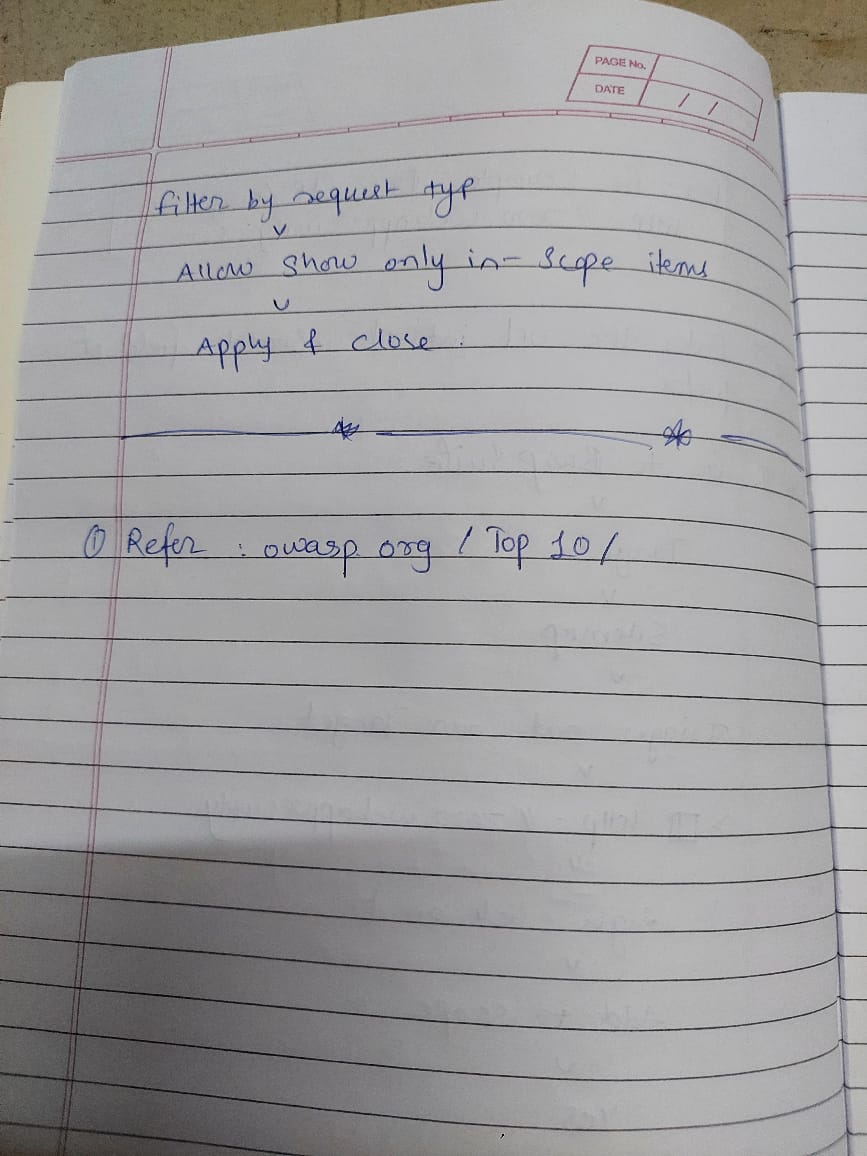 PAGE No.
DATE / /
filter by request typ
Allow show only in- scope items
Apply & close .
① Refer : owasp. org / Top 10 /